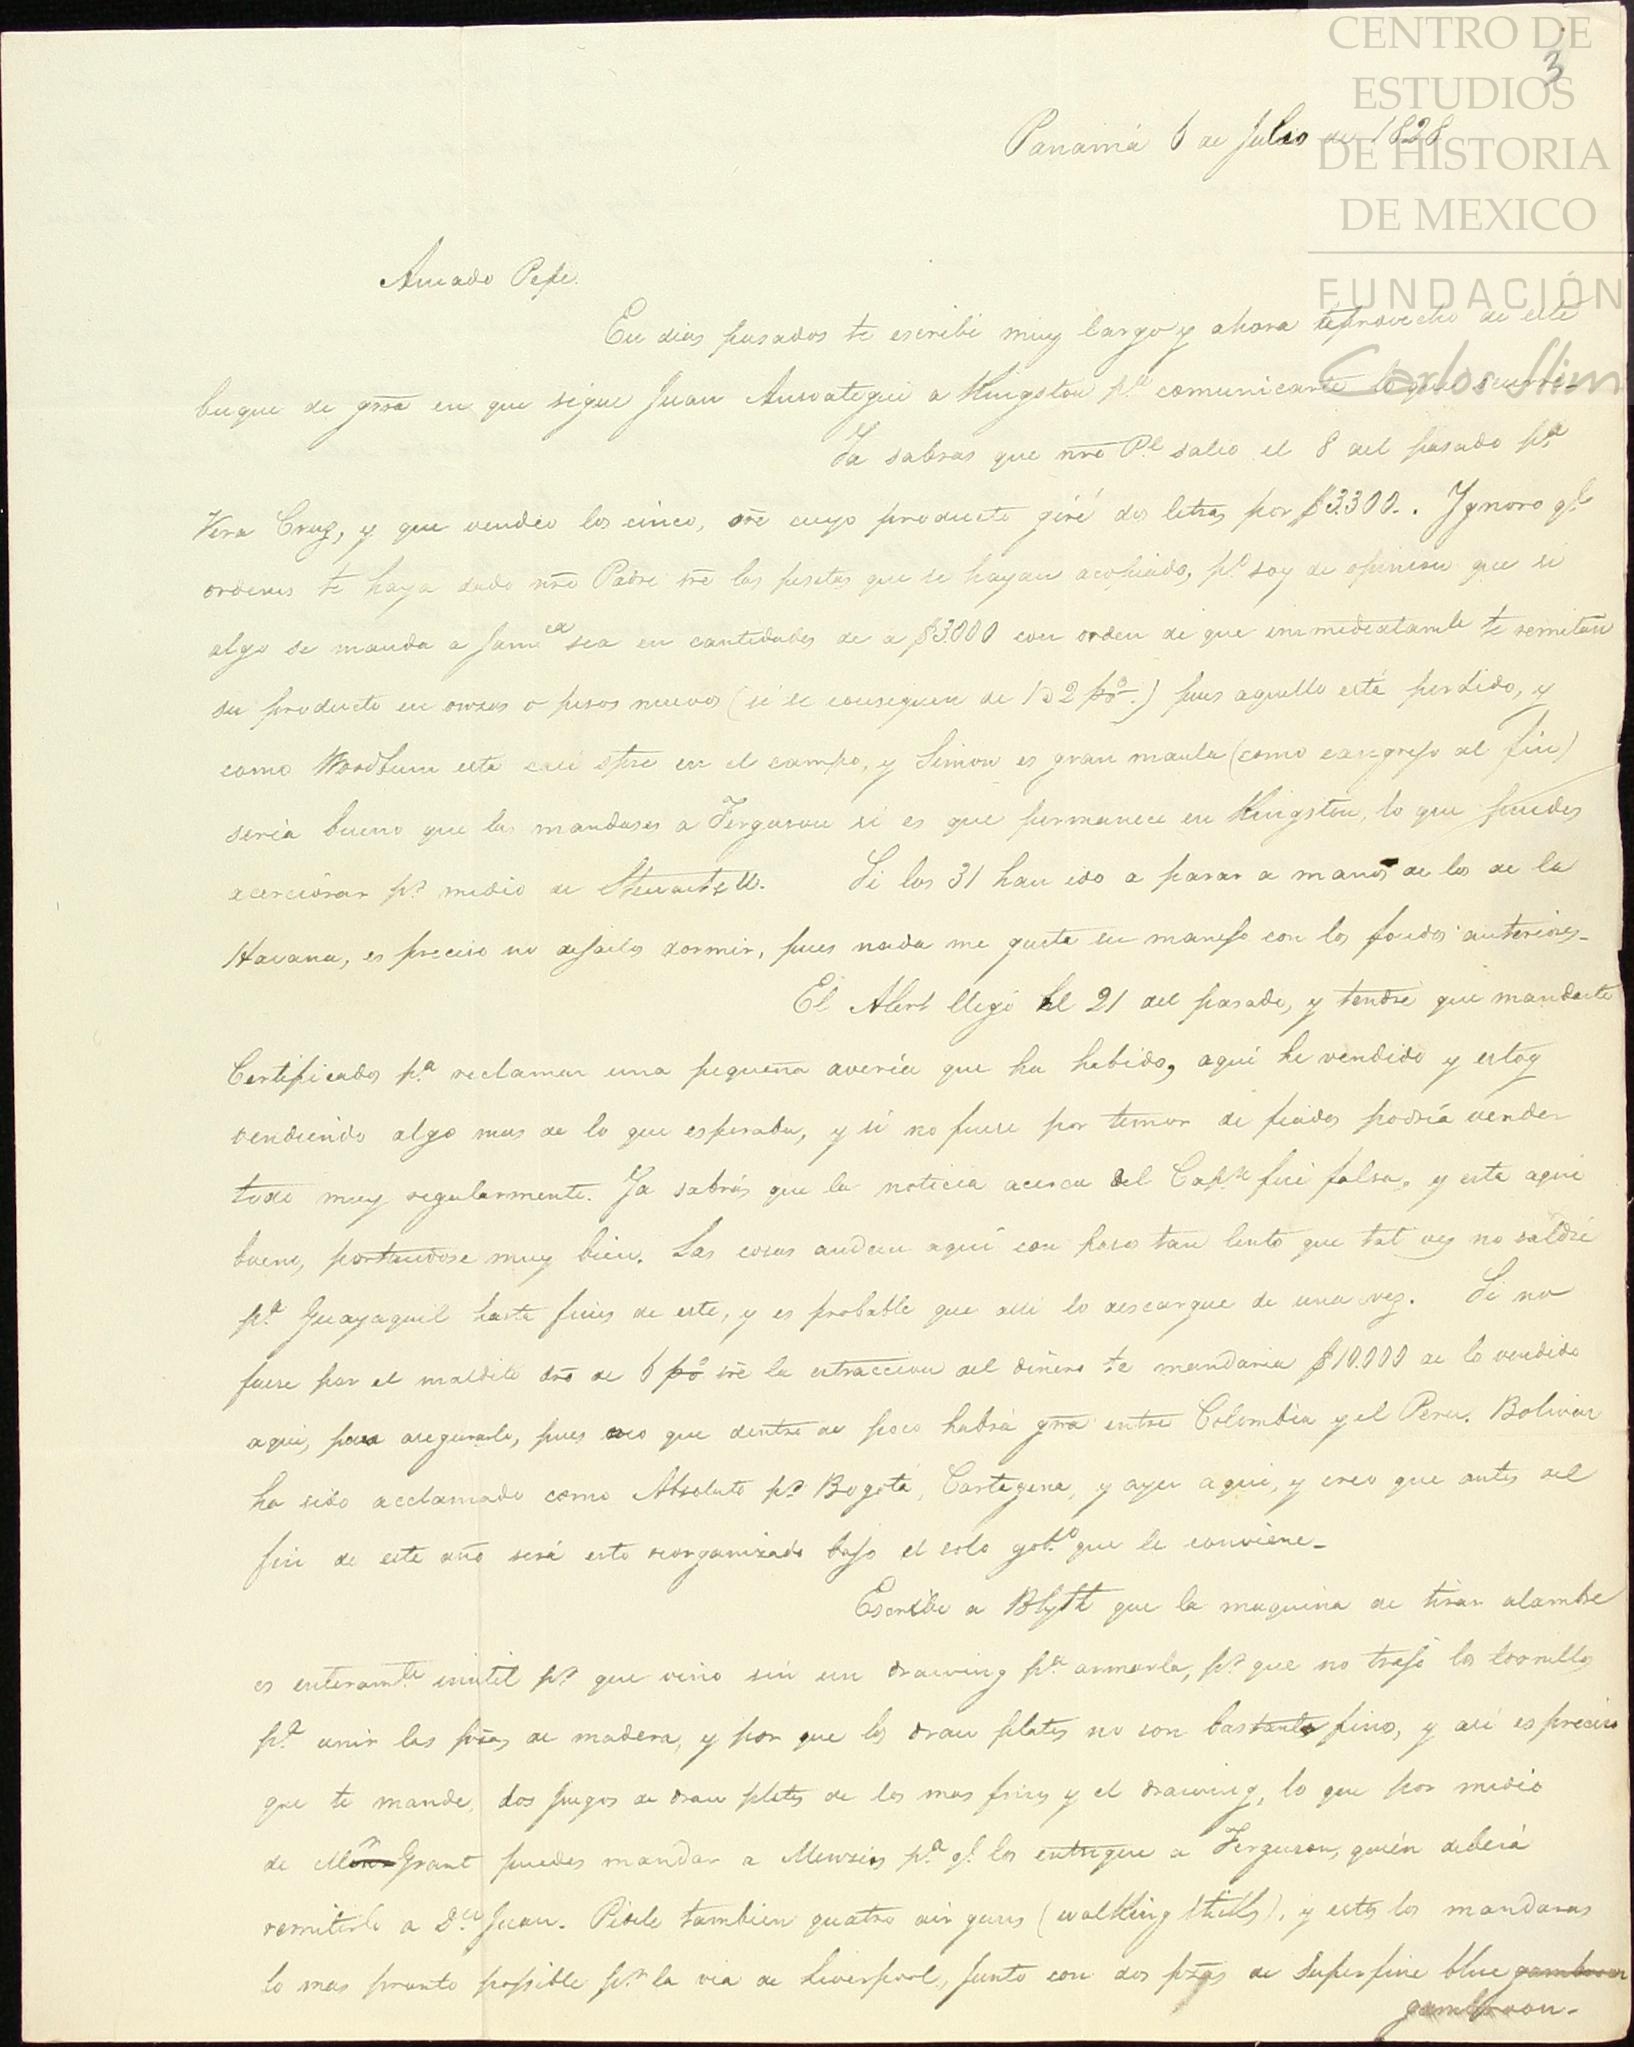 CENTRO DE
ESTUDIOS
DE HISTORIA
DE MEXICO
FUNDACIÓN
Carlos Slim
3
Panamá 6 de Julio de 1828
Amado Pepe.
En dias pasados te escribi muy largo y ahora aprovecho de este
buque de grra en que sigue Juan a Kingston pa comunicarte lo que ocurre_
Ya sabras que nro Pe salio el 8 del pasado pa
Vera Cruz, y que vendio los cinco, sre cuyo producto giré dos letras por $3.300.. Ygnoro qe
ordenes te haya dado nro Padre sre las pesetas que se hayan acopiado, po soy de opinion que si
algo se manda a Jamca sea en cantidades de a $3.000 con orden de que immediatamte te remitan
su producto en onzas o pesos nuevos (si se consiguen de 1 a 2 po.) pues aquello está perdido, y
como Woodburn está casi spre en el campo, y Simon es gran maula (como cangrejo al fin)
seria bueno que las mandases a Ferguson si es que permanece en Kingston, lo que puedes
acerciorar pr medio de Si los 31 han ido a parar a manos de los de la
Havana, es preciso no dejarlos dormir, pues nada me gusta su manejo con los fondos anteriores_
El Alert llegó el 21 del pasado, y tendré que mandarte
Certificados pa reclamar una pequeña averia que ha habido, aqui he vendido y estoy
vendiendo algo mas de lo que esperaba, y si no fuese por temor de fiados podria vender
todo muy regularmente. Ya sabrás que la noticia acerca del Capn fué falsa, y esta aqui
bueno, portandose muy bien. Las cosas andan aqui con paso tan lento que tal vez no saldré
pa Guayaquil hasta fines de este, y es probable que alli lo descargue de una vez. Si no
fuese por el maldito dro de 6 po sre la estraccion del dinero te mandaria $10.000 de lo vendido
aqui, para asegurarlo, pues creo que dentro de poco habrá grra entre Colombia y el Peru. Bolivar
ha sido acclamado como Absoluto pr Bogotá, Cartagena, y ayer aqui, y creo que antes del
fin de este año será esto reorganizado bajo el solo gobno que le conviene_
Escribe a Blyth que la maquina de tirar alambre
es enteramte inutil pr que vino sin un drawing pa armarla, pr que no trajo los tornillos
pa unir las pzas de madera, y por que los draw plates no son bastante finos, y asi es preciso
que te mande dos juegos de draw plates de los mas finos y el drawing, lo que por medio
de Grant puedes mandar a Menzies pa qe los entregue a Ferguson, quién deberá
remitirlo a Dn Juan. Pidele tambien quatro air guns (walking sticks), y estos los mandaras
lo mas pronto possible pr la via de Liverpool, junto con dos pzas de superfine blue gambroon
gambroon.